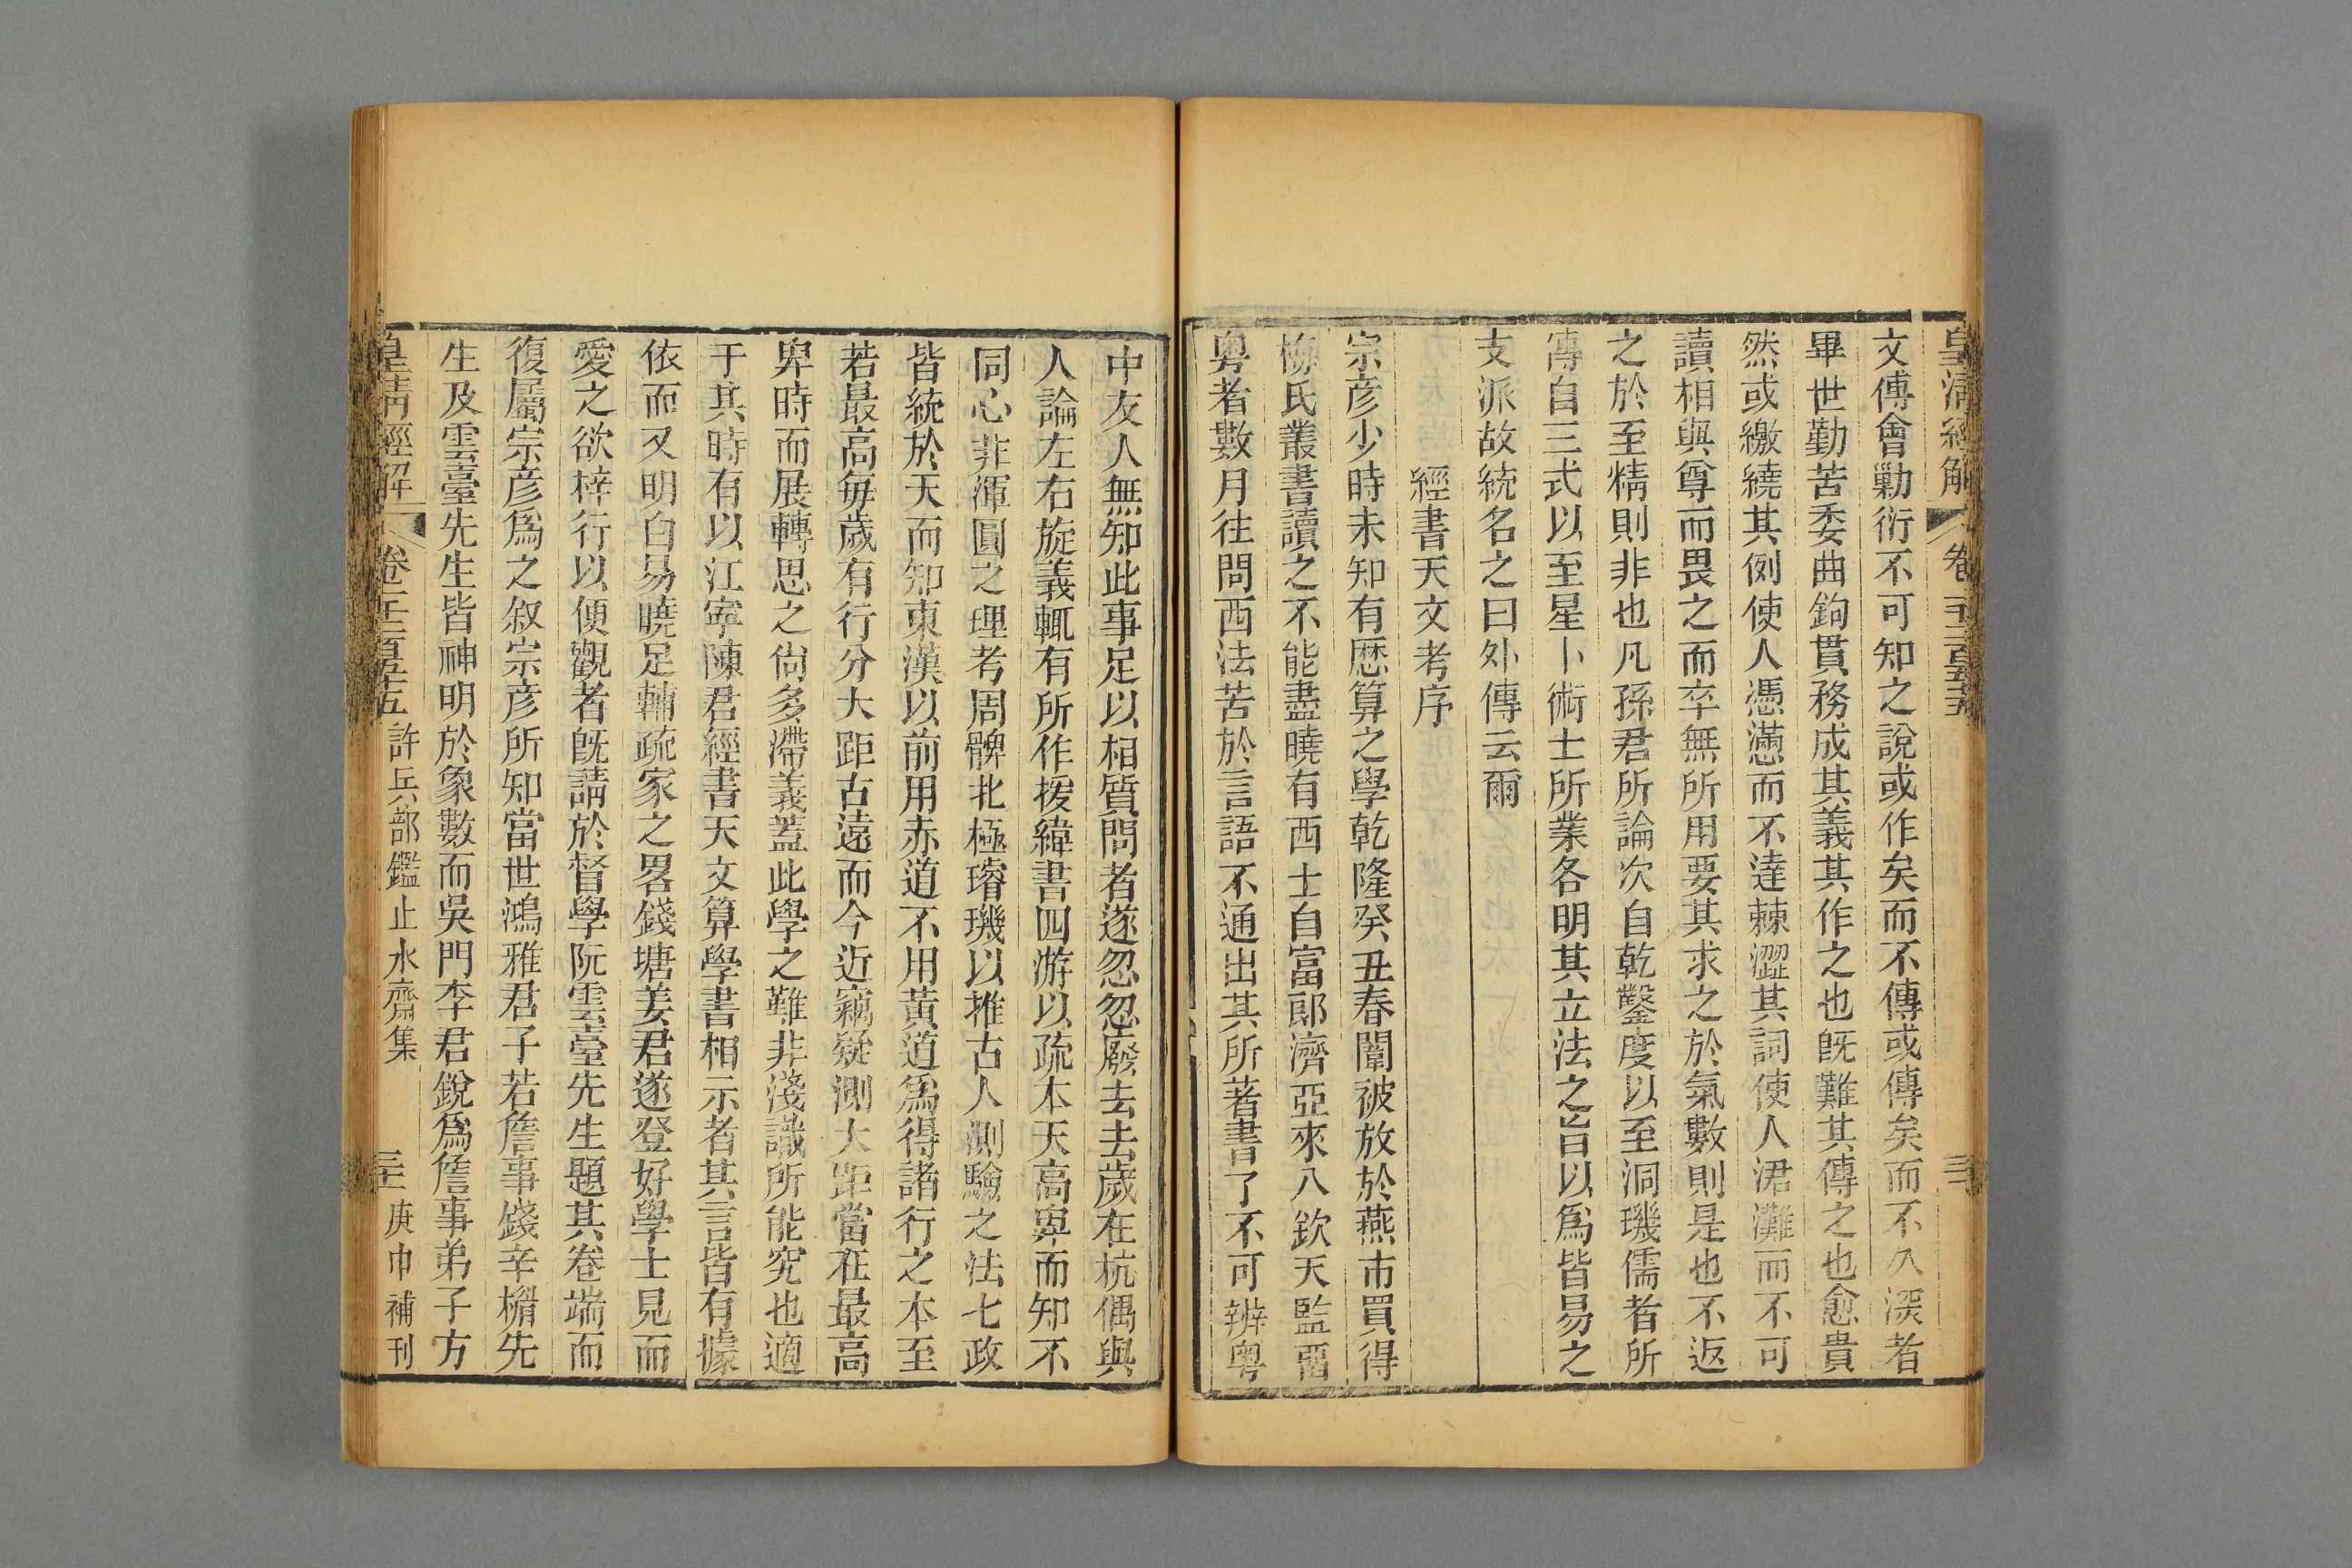 皇清經解 卷一千二百五十五
文傅會勦衍不可知之說或作矣而不傳或傳矣而不久深者
畢世勤苦委曲鉤貫務成其義其作之也旣難其傳之也愈貴
然或繳繞其例使人憑懣而不達棘澀其詞使人涒灘而不可
讀相與尊而畏之而卒無所用要其求之於氣數則是也不返
之於至精則非也凡孫君所論次自乾鑿度以至洞璣儒者所
傳自三式以至星卜術士所業各明其立法之旨以爲皆易之
支派故統名之曰外傳云爾
經書天文考序
宗彥少時未知有厯算之學乾隆癸丑春闈被放於燕市買得
梅氏叢書讀之不能盡曉有西士自富郞濟亞來入欽天監畱
粵者數月往問西法苦於言語不通出其所著書了不可辨粵
中友人無知此事足以相質問者遂忽忽廢去去歲在杭偶與
人論左右旋義輒有所作援緯書四游以疏本天高卑而知不
同心非渾圓之理考周髀北極璿璣以推古人測驗之法七政
皆統於天而知東漢以前用赤道不用黃道爲得諸行之本至
若最高每歲有行分大距古遠而今近竊疑測大距當在最高
卑時而展轉思之尙多滯義蓋此學之難非淺識所能究也適
于其時有以江寧陳君經書天文算學書相示者其言皆有據
依而又明白易曉足輔疏家之畧錢塘姜君遂登好學士見而
愛之欲梓行以便觀者旣請於督學阮雲臺先生題其卷端而
復屬宗彥爲之叙宗彥所知當世鴻雅君子若詹事錢辛楣先
生及雲臺先生皆神明於象數而吳門李君銳爲詹事弟子方
皇清經解 卷一千二百五十五 許兵部鑑止水齋集 庚申補刊